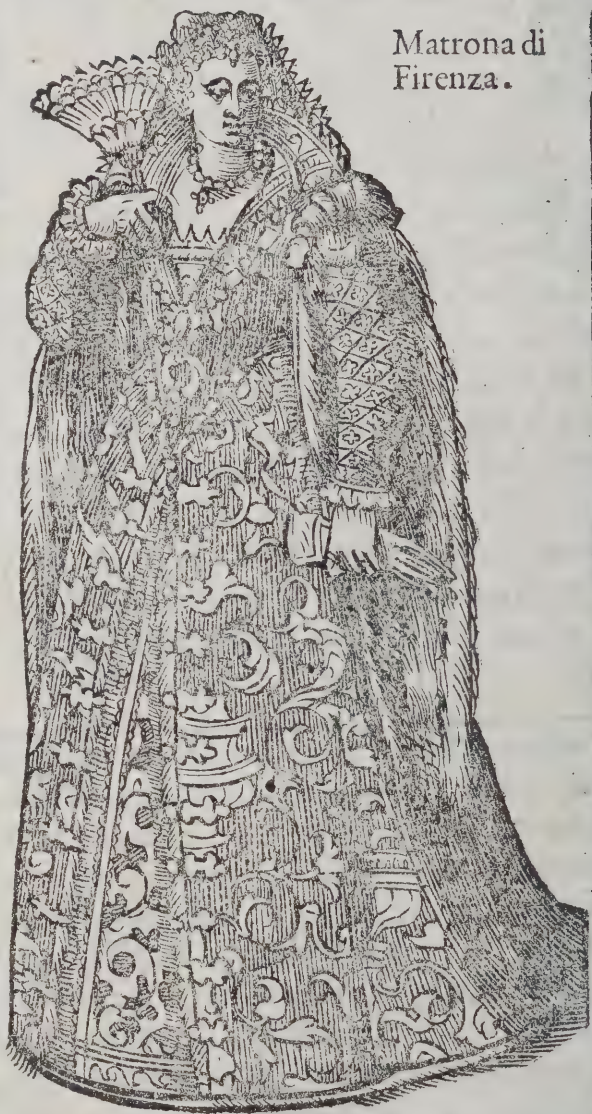 Matrona di
Firenza.